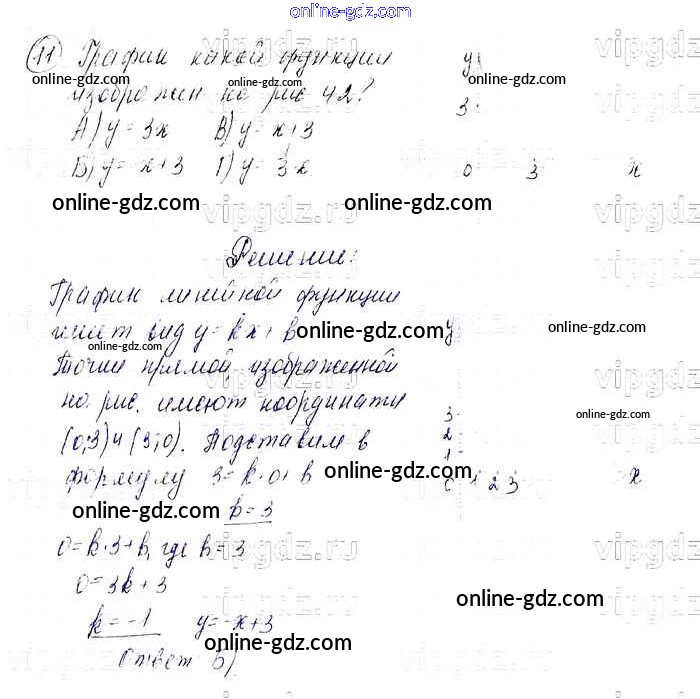 online-gdz.com
11 График какой функции
изображен на рис 42?
А) y = 3x В) y = x+3
Б) y = -x+3 Г) y = 3x
y
3
0 3 x
online-gdz.com
online-gdz.com
online-gdz.com
online-gdz.com
online-gdz.com
vipgdz.ru
Решение:
График линейной функции
имеет вид y = kx + b
Точки прямой, изображенной
на рис. имеют координаты
(0;3) и (3;0). Подставим в
формулу 3 = k·0 + b
b = 3
0 = k·3 + b, где b = 3
0 = 3k + 3
k = -1 y = -x+3
Ответ Б)
y
3
2
1
0 1 2 3 x
online-gdz.com
online-gdz.com
online-gdz.com
online-gdz.com
online-gdz.com
online-gdz.com
online-gdz.com
online-gdz.com